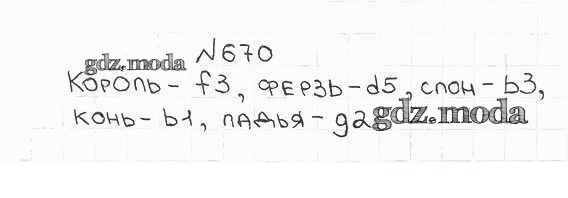 N670
gdz.moda
Король - f3, ферзь - d5, слон - b3,
конь - b1, ладья - g2
gdz.moda